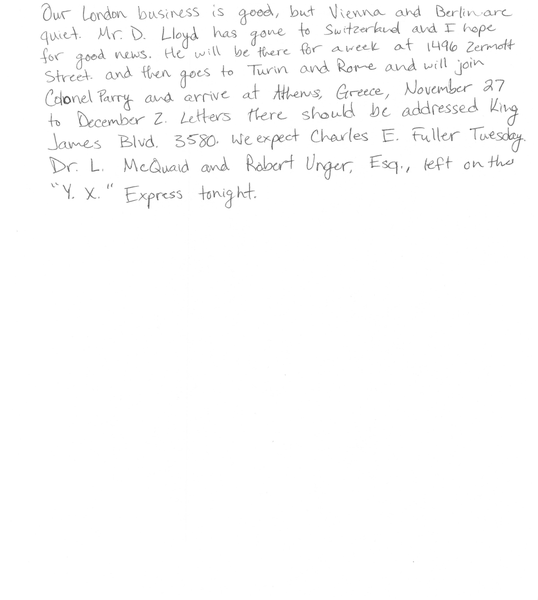 Our London business is good, but Vienna and Berlin are
quiet. Mr. D. Lloyd has gone to Switzerland and I hope
for good news. He will be there for a week at 1496 Zermott
Street. and then goes to Turin and Rome and will join
Colonel Parry and arrive at Athens, Greece, November 27
to December 2. Letters there should be addressed King
James Blvd. 3580. We expect Charles E. Fuller Tuesday.
Dr. L. McQuaid and Robert Unger, Esq., left on the
"Y. X." Express tonight.